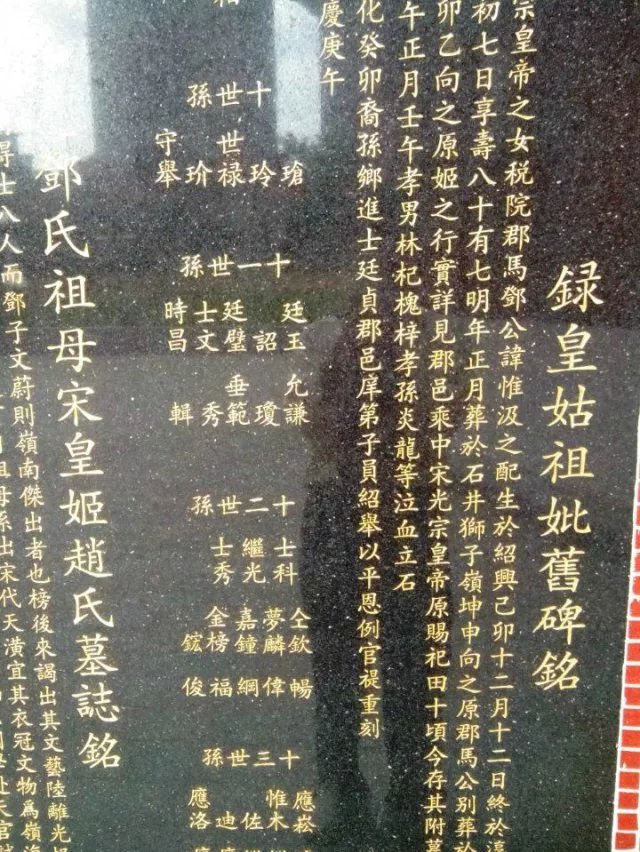 録皇姑祖妣舊碑銘
宗皇帝之女税院郡馬鄧公諱惟汲之配生於紹興己卯十二月十二日終於淳
初七日享壽八十有七明年正月葬於石井獅子嶺坤申向之原郡馬公别葬於
卯乙向之原姬之行實詳見郡邑乘中宋光宗皇帝原賜祀田十頃今存其附墓
午正月壬午孝男林杞槐梓孝孫炎龍等泣血立石
化癸卯裔孫鄉進士廷貞郡邑庠第子員紹舉以平恩例官禔重刻
慶庚午
十世孫
瑲
玲
世禄
玠
守舉
十一世孫
廷玉
詔
廷璧
士文
時昌
允謙
瓊
垂範
秀
輯
十二世孫
士科
繼光
士秀
仝欽
夢麟
嘉鐘
金榜
鋐
暢
偉
綱
福
俊
十三世孫
應崧
惟木
佐
迪
應洛
鄧氏祖母宋皇姬趙氏墓誌銘
得士八人而鄧子文蔚則嶺南傑出者也榜後來謁出其文藝陸離光
祖母係出宋代天潢宜其衣冠文物爲嶺海